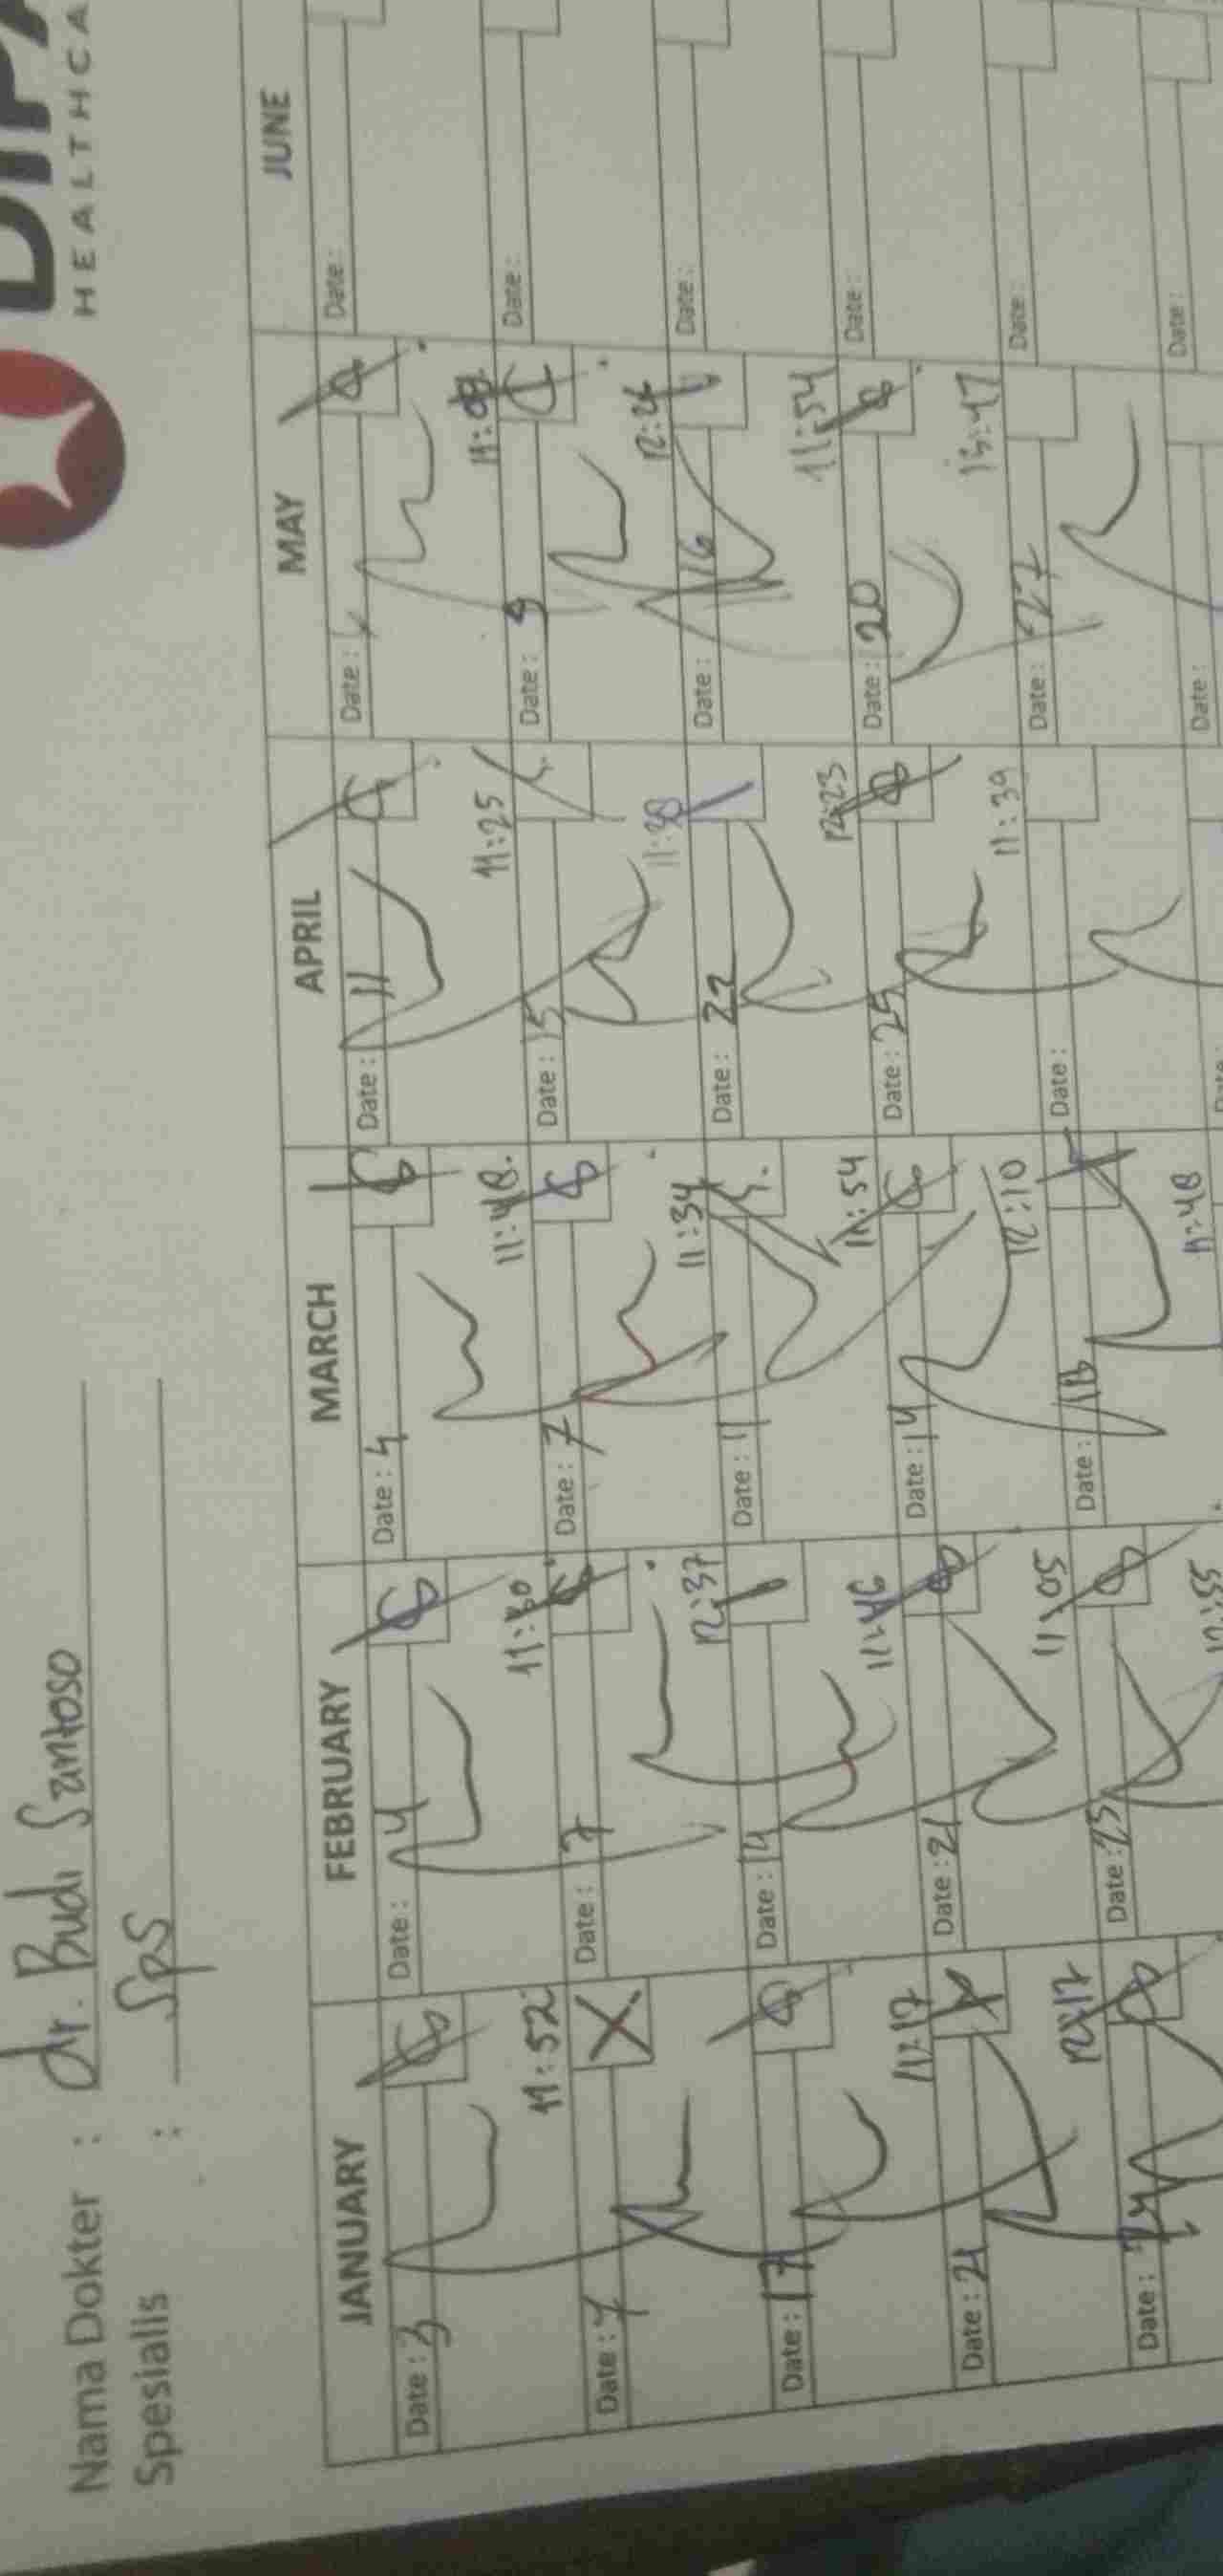 HEALTHCA
Nama Dokter : dr. Budi Santoso
Spesialis : SpS
JANUARY FEBRUARY MARCH APRIL MAY JUNE
Date : 3 Date : 4 Date : 4 Date : 11 Date : Date :
11:52 11:48. 11:25
Date : 7 Date : 7 Date : 7 Date : 15 Date : 9 Date :
12:37 11:34 12:26
Date : 17 Date : 14 Date : 11 Date : 22 Date : 16 Date :
11:17 11:46 11:54 12:23 11:54
Date : 21 Date : 21 Date : 14 Date : 25 Date : 20 Date :
12:17 11:05 12:10 11:39 13:47
Date : 24 Date : 25 Date : 18 Date : Date : 27 Date :
11:48
Date : Date :